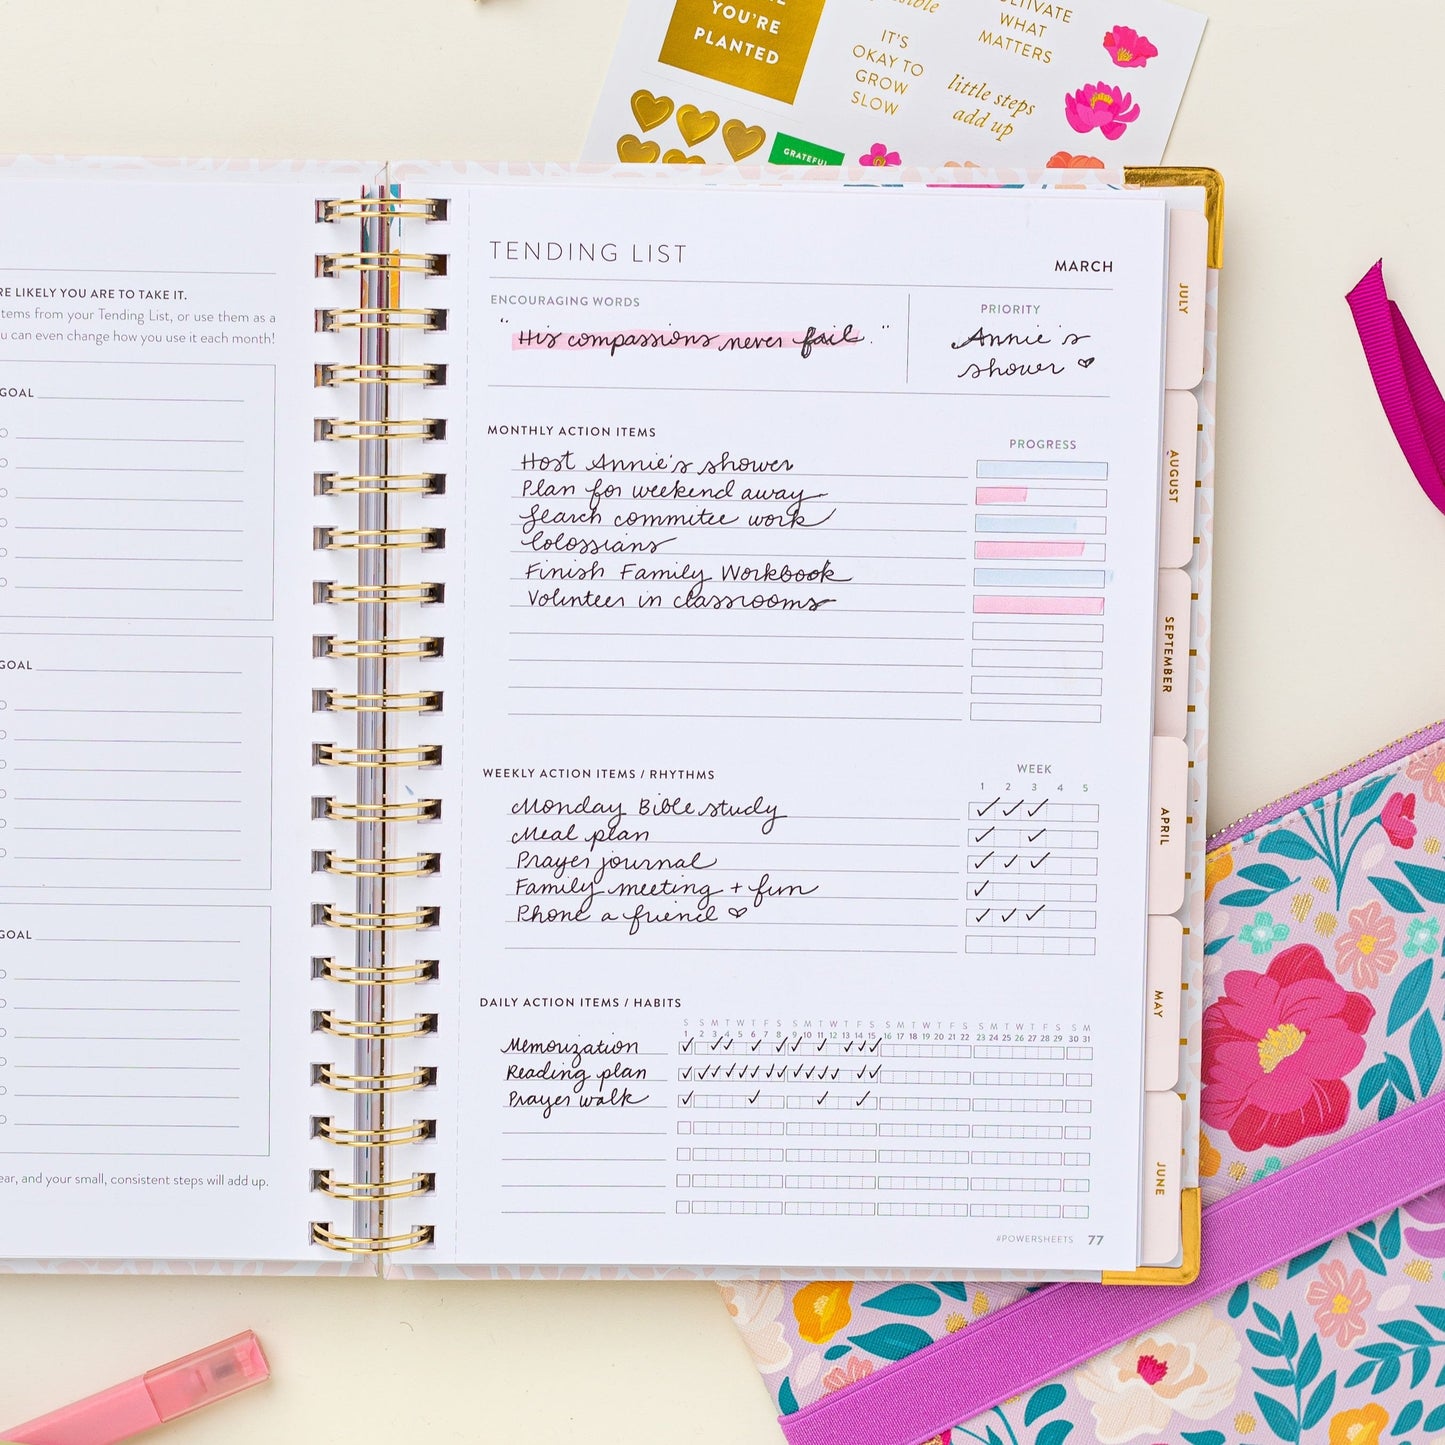 YOU'RE
PLANTED
CULTIVATE
WHAT
MATTERS
IT'S
OKAY TO
GROW
SLOW
little steps
add up
GRATEFUL
RE LIKELY YOU ARE TO TAKE IT.
tems from your Tending List, or use them as a
u can even change how you use it each month!
GOAL
GOAL
GOAL
ear, and your small, consistent steps will add up.
TENDING LIST
MARCH
ENCOURAGING WORDS
"His compassions never fail."
PRIORITY
Annie's
shower
MONTHLY ACTION ITEMS
PROGRESS
Host Annie's shower
Plan for weekend away
Search commitee work
Colossians
Finish Family Workbook
Volunteer in classrooms
WEEKLY ACTION ITEMS / RHYTHMS
WEEK
1 2 3 4 5
Monday Bible study
Meal plan
Prayer journal
Family meeting + fun
Phone a friend
DAILY ACTION ITEMS / HABITS
S S M T W T F S S M T W T F S S M T W T F S S M T W T F S S M
1 2 3 4 5 6 7 8 9 10 11 12 13 14 15 16 17 18 19 20 21 22 23 24 25 26 27 28 29 30 31
Memorization
Reading plan
Prayer walk
#POWERSHEETS 77
JULY
AUGUST
SEPTEMBER
APRIL
MAY
JUNE